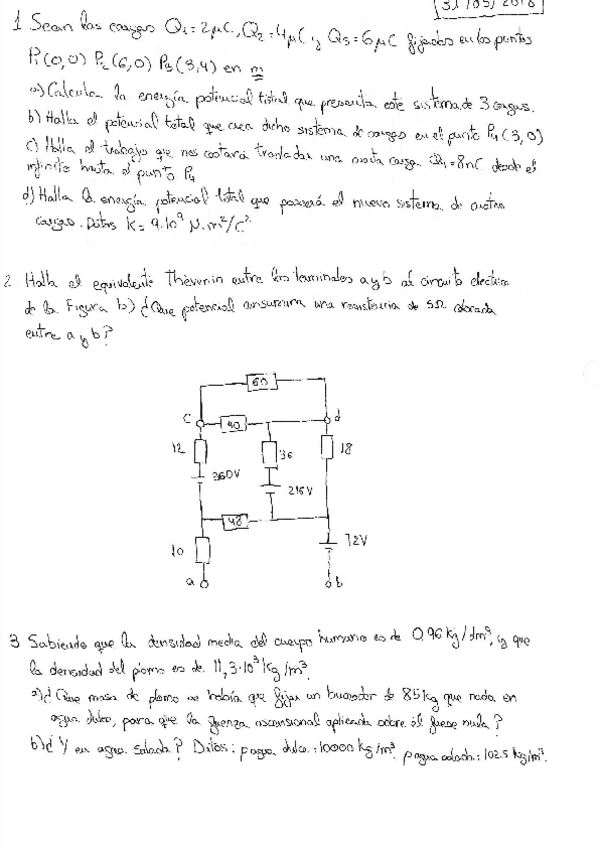 31/05/2018
1 Sean las cargas Q1 = 2μC, Q2 = 4μC y Q3 = 6μC fijadas en los puntos
P1(0,0) P2(6,0) P3(3,4) en m
a) Calcula la energía potencial total que presenta este sistema de 3 cargas.
b) Halla el potencial total que crea dicho sistema de cargas en el punto P4(3,0)
c) Halla el trabajo que nos costará trasladar una cuarta carga Q4 = 8nC desde el
infinito hasta el punto P4
d) Halla la energía potencial total que poseerá el nuevo sistema de cuatro
cargas. Datos K = 9·10⁹ N·m²/C²
2 Halla el equivalente Thèvenin entre los terminales a y b al circuito eléctrico
de la Figura b) ¿Que potencia consumirá una resistencia de 5Ω colocada
entre a y b?
60
c
40
d
12
36
18
360V
216V
48
10
72V
a
b
3 Sabiendo que la densidad media del cuerpo humano es de 0,96 kg/dm³, y que
la densidad del plomo es de 11,3·10³ kg/m³.
a) ¿Que masa de plomo se habría que fijar un buceador de 85 kg que nada en
agua dulce, para que la fuerza ascensional aplicada sobre él fuese nula?
b) ¿Y en agua salada? Datos: ρagua dulce: 10000 kg/m³ ρagua salada: 102.5 kg/m³.